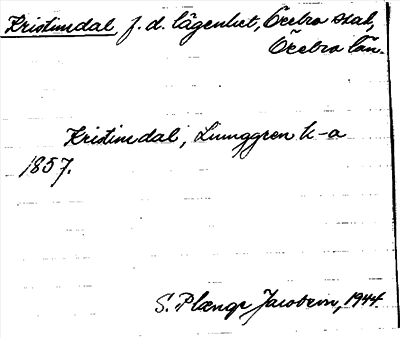 Kristinedal f. d. lägenhet, Örebro stad,
Örebro län.
Kristinedal, Ljunggren k-a
1857.
S. Plænge Jacobson, 1944.